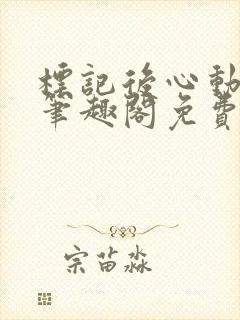 標記後心動
筆趣閣免費
宗苗淼